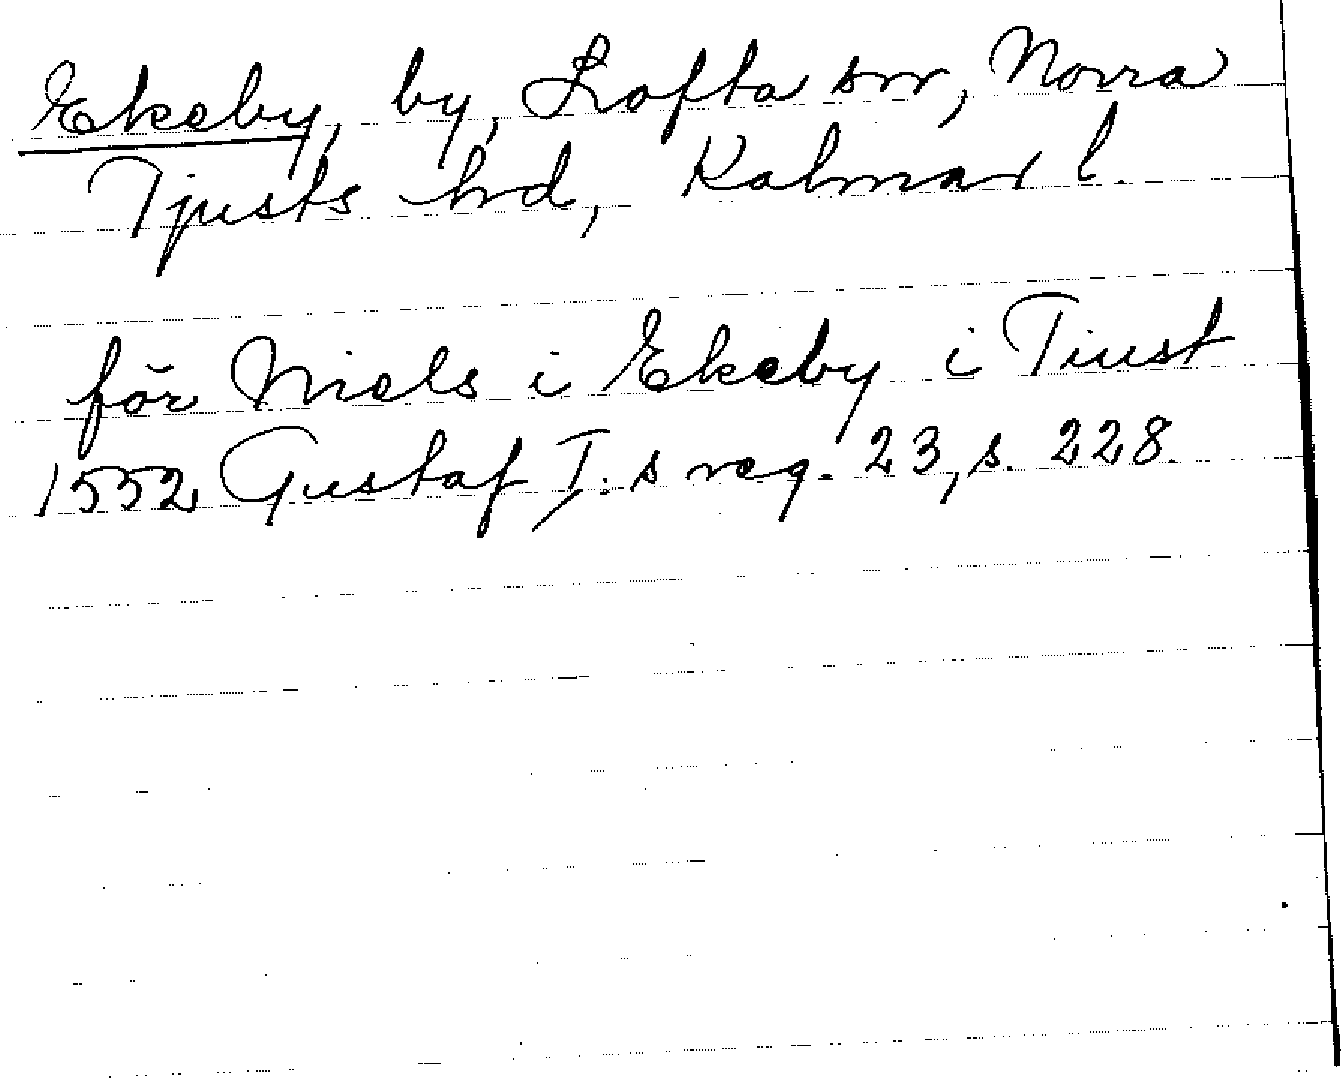 Ekeby, by, Lofta sn, Norra
Tjusts hrd, Kalmar l.
för Niels i Ekeby i Tiust
1552 Gustaf I:s reg. 23, s. 228.